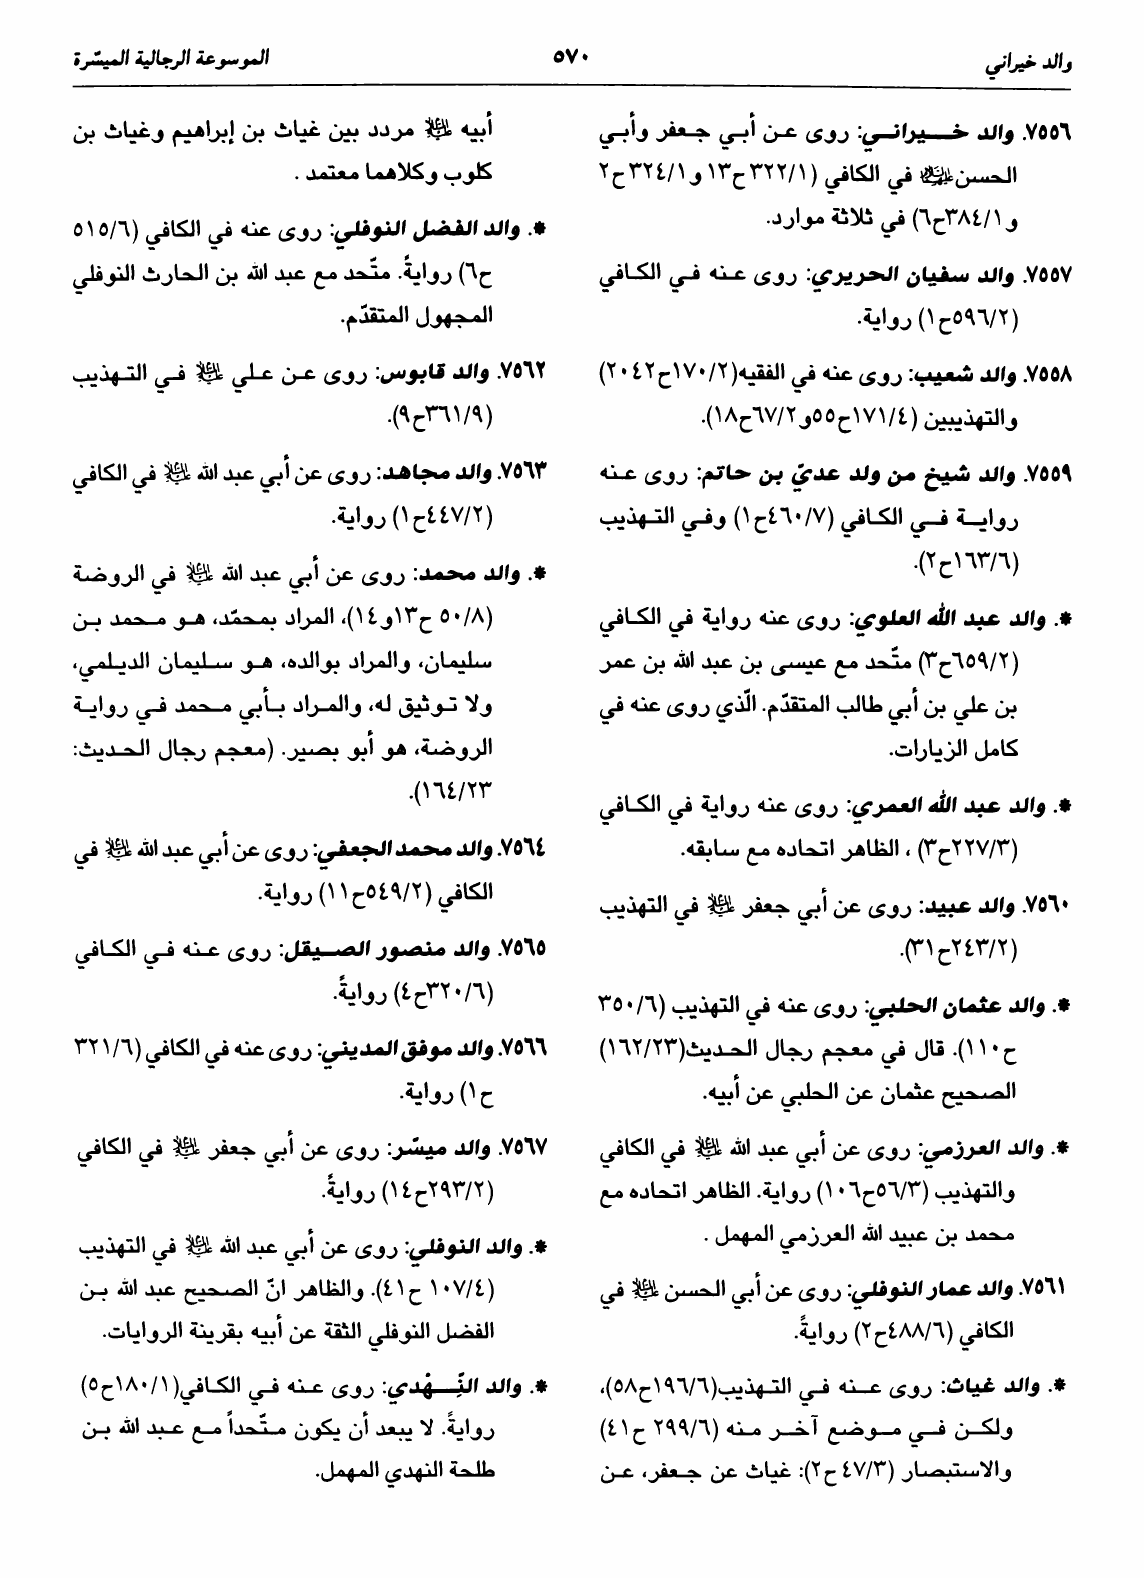 والد خيراني
٥٧٠
الموسوعة الرجالية الميسّرة
٧٥٥٦. والد خـــيرانـــي: روى عـن أبـي جـعفر وأبـي
الحسن عليهما السلام في الكافي (٣٢٢/١ح١٣ و٣٢٤/١ح٢
و٣٨٤/١ح٦) في ثلاثة موارد.
٧٥٥٧. والد سفيان الحريري: روى عـنه فـي الكـافي
(٥٩٦/٢ح١) رواية.
٧٥٥٨. والد شعيب: روى عنه في الفقيه(١٧٠/٢ح٢٠٤٢)
والتهذيبين (١٧١/٤ح٥٥و٦٧/٢ح١٨).
٧٥٥٩. والد شيخ من ولد عديّ بن حاتم: روى عـنه
روايـة فـي الكـافي (٤٦٠/٧ح١) وفـي التـهذيب
(١٦٣/٦ح٢).
*. والد عبد الله العلوي: روى عنه رواية في الكـافي
(٦٥٩/٢ح٣) متّحد مع عيسى بن عبد الله بن عمر
بن علي بن أبي طالب المتقدّم. الّذي روى عنه في
كامل الزيارات.
*. والد عبد الله العمري: روى عنه رواية في الكـافي
(٢٢٧/٣ح٣) ، الظاهر اتحاده مع سابقه.
٧٥٦٠. والد عبيد: روى عن أبي جعفر عليه السلام في التهذيب
(٢٤٣/٢ح٣١).
*. والد عثمان الحلبي: روى عنه في التهذيب (٣٥٠/٦
ح١١٠). قال في معجم رجال الحديث(١٦٢/٢٣)
الصحيح عثمان عن الحلبي عن أبيه.
*. والد العرزمي: روى عن أبي عبد الله عليه السلام في الكافي
والتهذيب (٥٦/٣ح١٠٦) رواية. الظاهر اتحاده مع
محمد بن عبيد الله العرزمي المهمل .
٧٥٦١. والد عمار النوفلي: روى عن أبي الحسن عليه السلام في
الكافي (٤٨٨/٦ح٢) روايةً.
*. والد غياث: روى عـنه في التـهذيب(١٩٦/٦ح٥٨)،
ولكـن فـي مـوضع آخـر مـنه (٢٩٩/٦ ح٤١)
والاستبصار (٤٧/٣ ح٢): غياث عن جـعفر، عـن
أبيه عليه السلام مردد بين غياث بن إبراهيم وغياث بن
كلوب وكلاهما معتمد .
*. والد الفضل النوفلي: روى عنه في الكافي (٥١٥/٦
ح٦) روايةً. متّحد مع عبد الله بن الحارث النوفلي
المجهول المتقدّم.
٧٥٦٢. والد قابوس: روى عـن عـلي عليه السلام فـي التـهذيب
(٣٦١/٩ح٩).
٧٥٦٣. والد مجاهد: روى عن أبي عبد الله عليه السلام في الكافي
(٤٤٧/٢ح١) رواية.
*. والد محمد: روى عن أبي عبد الله عليه السلام في الروضة
(٥٠/٨ ح١٣و١٤)، المراد بمحمّد، هـو مـحمد بـن
سليمان، والمراد بوالده، هـو سـليمان الديـلمي،
ولا تـوثيق له، والمـراد بـأبي مـحمد فـي روايـة
الروضة، هو أبو بصير. (معجم رجال الحديث:
١٦٤/٢٣).
٧٥٦٤. والد محمد الجعفي: روى عن أبي عبد الله عليه السلام في
الكافي (٥٤٩/٢ح١١) رواية.
٧٥٦٥. والد منصور الصـيقل: روى عـنه فـي الكـافي
(٣٢٠/٦ح٤) روايةً.
٧٥٦٦. والد موفق المديني: روى عنه في الكافي (٣٢١/٦
ح١) رواية.
٧٥٦٧. والد ميسّر: روى عن أبي جعفر عليه السلام في الكافي
(٢٩٣/٢ح١٤) روايةً.
*. والد النوفلي: روى عن أبي عبد الله عليه السلام في التهذيب
(١٠٧/٤ ح٤١). والظاهر انّ الصحيح عبد الله بـن
الفضل النوفلي الثقة عن أبيه بقرينة الروايات.
*. والد النَّـــهْدي: روى عـنه فـي الكـافي(١٨٠/١ح٥)
روايةً. لا يبعد أن يكون مـتّحداً مـع عـبد الله بـن
طلحة النهدي المهمل.